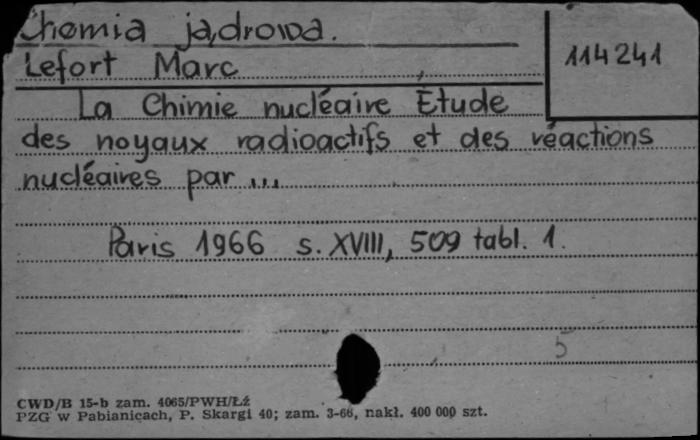 Chemia jądrowa.
114241
Lefort Marc
La Chimie nucléaire Étude
des noyaux radioactifs et des réactions
nucléaires par ...
Paris 1966 s. XVIII, 509 tabl. 1.
5
CWD/B 15-b zam. 4065/PWH/Łź
PZG w Pabianicach, P. Skargi 40; zam. 3-66, nakł. 400 000 szt.